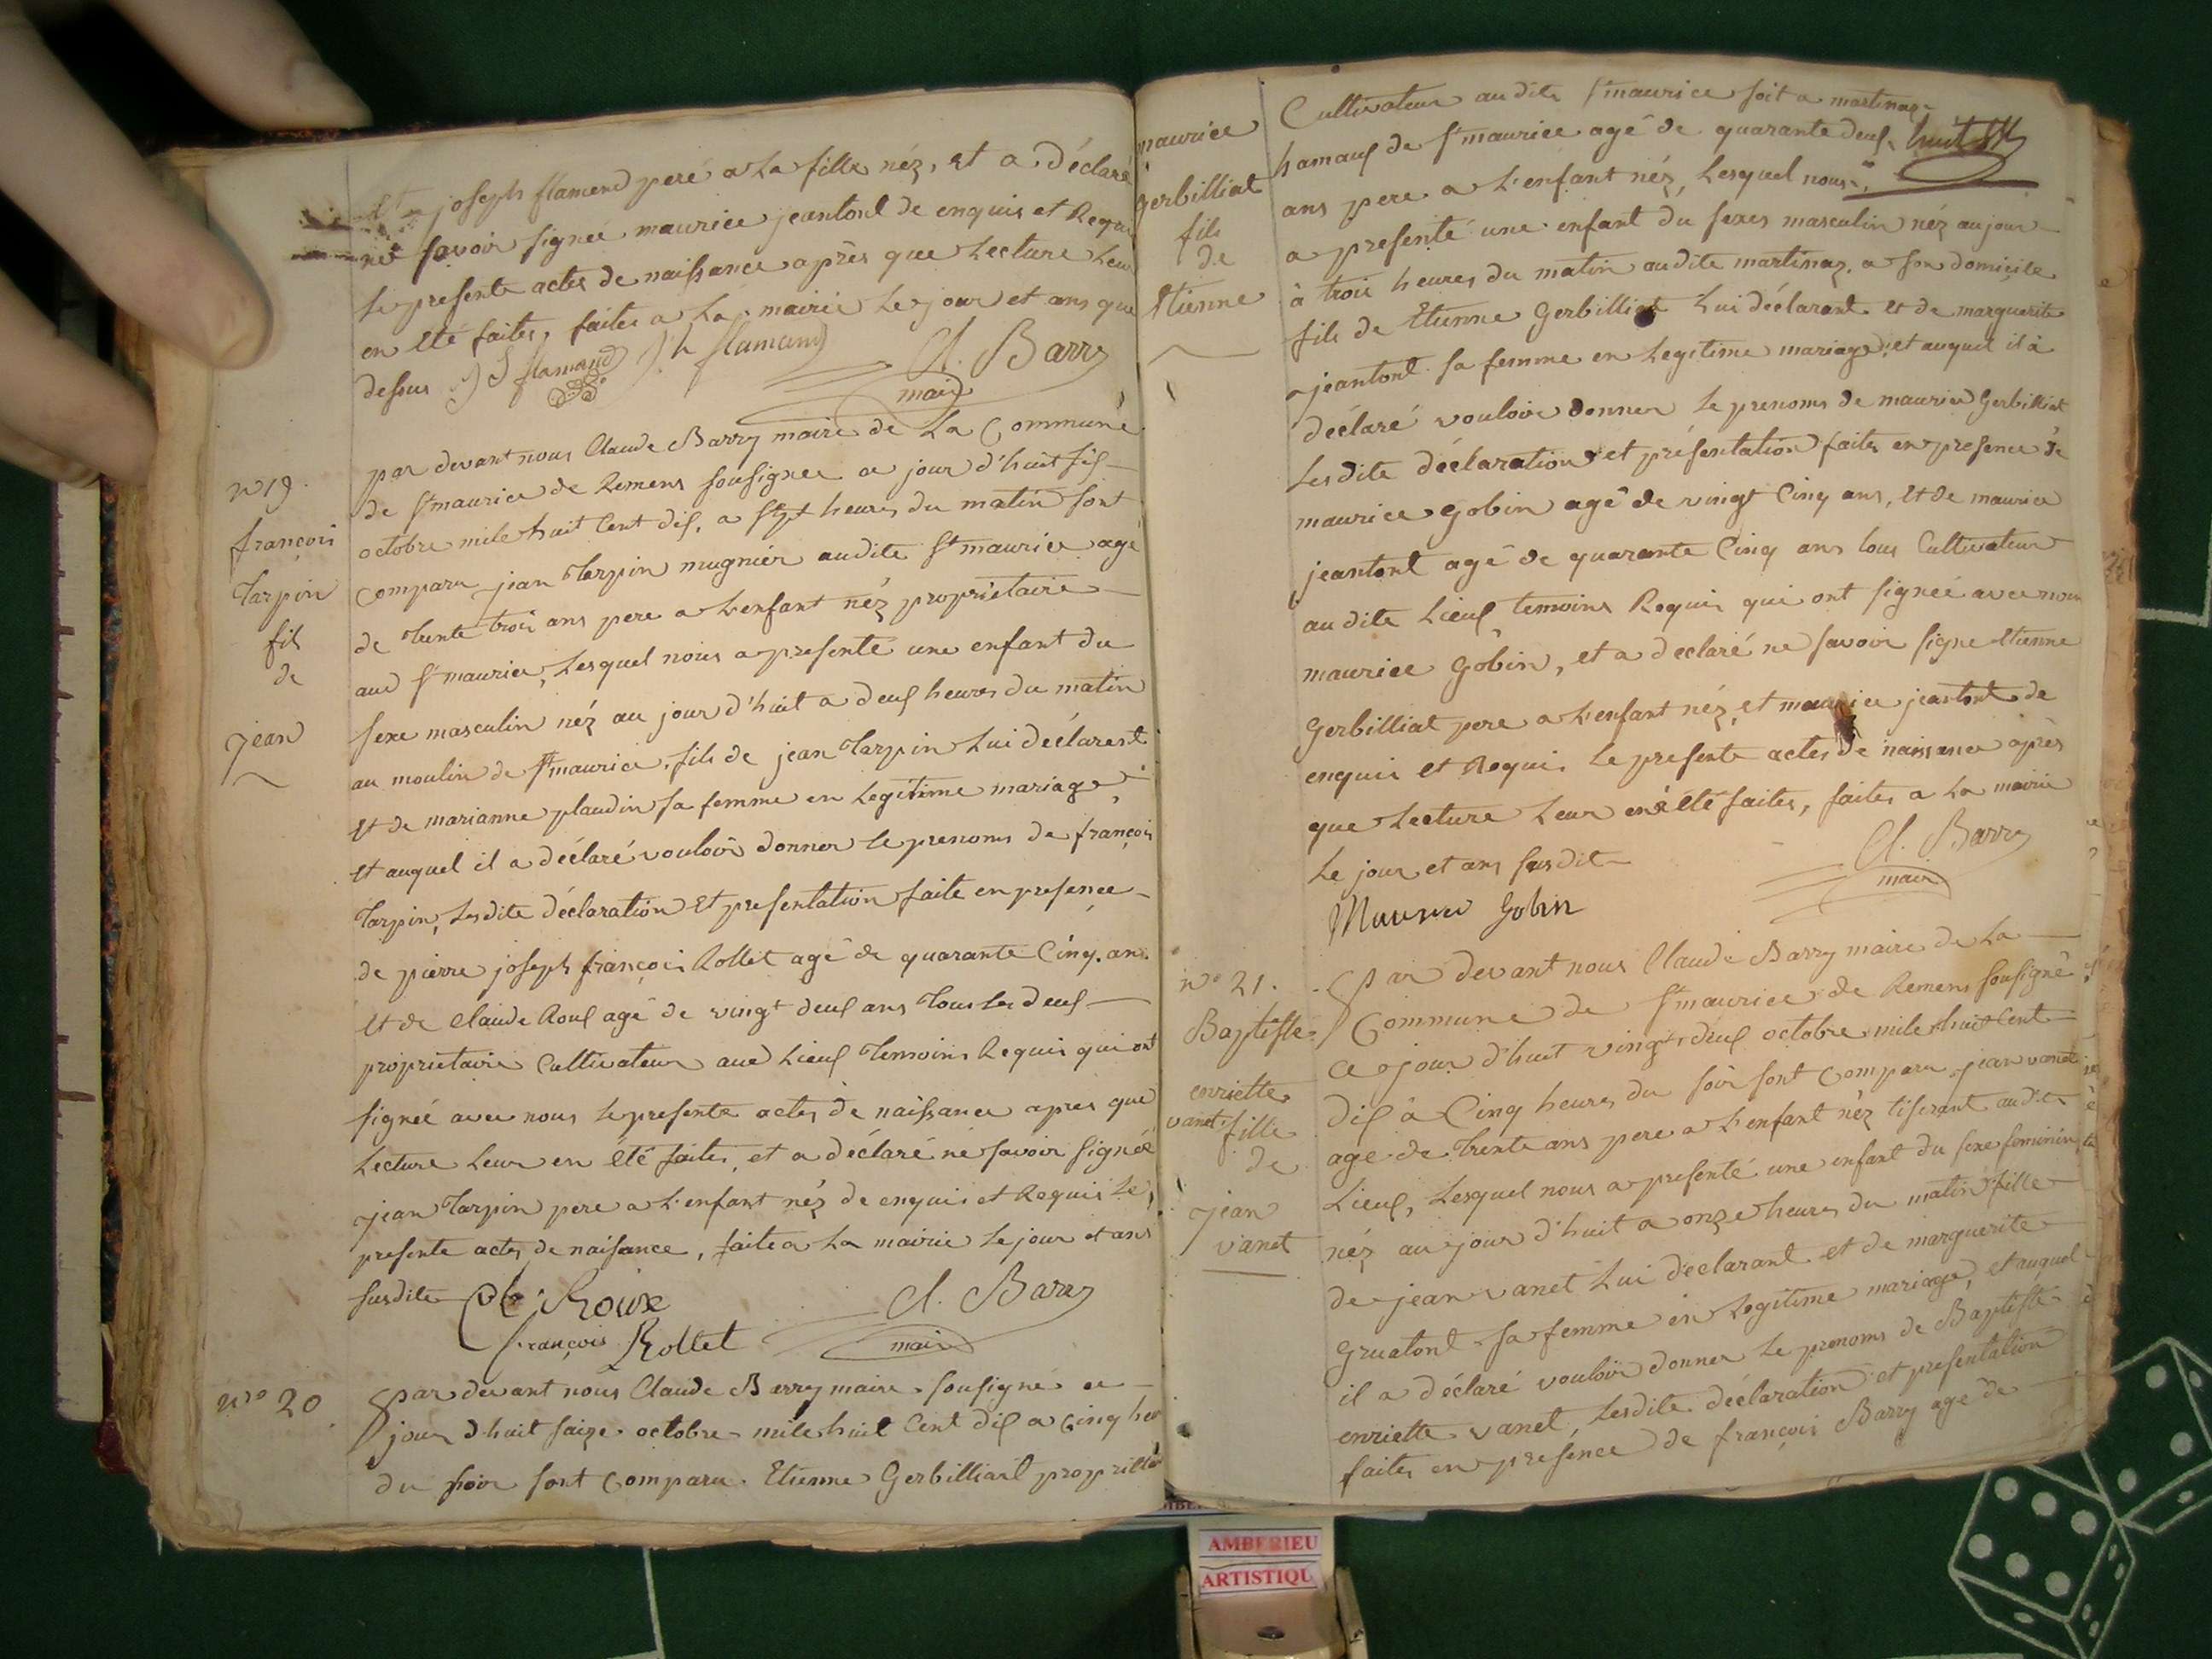 et joseph flamend pere a la fille néz, et a déclaré
ne savoir signeé maurice jeantont de enquis et Requis
le presente actes de naissance aprês que Lecture Leur
en été faites, faites a La mairie Le jour et ans que
dessus J flamand J h flamand Cl. Barry
maire
n 19.
françois
Tarpin
fils
de
jean
par devant nous Claude Barry maire de La Commune
de St maurice de Remens sousignee ce jour d'huit six
octobre mile huit Cent dix, a sept heures du matin sont
comparu jean Tarpin mugnier audite St maurice agé
de trente trois ans pere a L'enfant néz propriétaire
aud St maurice, Lesquel nous a presenté une enfant du
sexe masculin néz au jour d'huit a deux heures du matin
au moulin de St maurice, fils de jean Tarpin Lui déclarent
et de marianne plaudin sa femme en Legitime mariage
et auquel il a déclaré vouloir donner le prenoms de françois
Tarpin, Lesdite déclaration et presentation faite en presence
de pierre joseph françois Rollet agé de quarante Cinq ans
et de Claude Roux agé de vingt deux ans Tous les deux
proprietaire Cultivateur aud Lieux Temoins Requis qui ont
signéé avec nous le presente actes de naissance apres que
Lecture Leur en été faites, et a déclaré né savoir signéé
jean Tarpin pere a L'enfant néz de enquis et Requis Le
presente actes de naisance, faite a La mairie Le jour et ans
susdite Cl. Roux Cl. Barry
françois Rollet maire
n° 20
par devant nous Claude Barry maire sousigné ce
jour d'huit saize octobre mile huit Cent dix a Cinq heu
du soir sont Comparu Etienne Gerbilliat
maurice
Gerbilliat
fils
de
Etienne
Cultivateur audite St maurice soit a martinaz
hamaux de St maurice agé de quarante deux huit
ans pere a L'enfant néz, Lesquel nous
a presenté une enfant du sexes masculin néz au jour
à trois heures du matin audite martinaz, a son domicile
fils de Etienne Gerbilliat Lui déclarant et de marguerite
jeantont sa femme en Legitime mariage, et auquel il à
déclaré vouloir donner le prenoms de maurice Gerbilliat
Lesdite déclaration et présentation faites en presence de
maurice Gobin agé de vingt Cinq ans, et de maurice
jeantont agé de quarante Cinq ans tous Cultivateur
audite Lieux temoins Requis qui ont signéé avec nous
maurice Gobin, et a declaré ne savoir signe Etienne
Gerbilliat pere a L'enfant néz, et maurice jeantont de
enquis et Requis Le presente actes de naissance aprês
que Lecture Leur en été faites, faites a La mairie
Le jour et ans susdit Cl. Barry
maire
Maurice Gobin
n° 21.
Baptiste
enriette
vanet fille
de
jean
vanet
Par devant nous Claude Barry maire de La
Commune de St maurice de Remens sousigné
ce jour d'huit vingt deux octobre mile huit Cent
dix à Cinq heures du soir sont Comparu jean vanet
age de Trente ans pere a L'enfant néz tiserant audite
Lieux, Lesquel nous a presenté une enfant du sexe feminin
néz au jour d'huit a onze heures du matin fille
de jean vanet Lui déclarant et de marguerite
Gruatont sa femme en Legitime mariage, et auquel
il a déclaré vouloir donner Le prenoms de Baptiste
enriette vanet, Lesdite déclaration et presentation
faites en presence de françois Barry agé de
AMBERIEU
ARTISTIQU